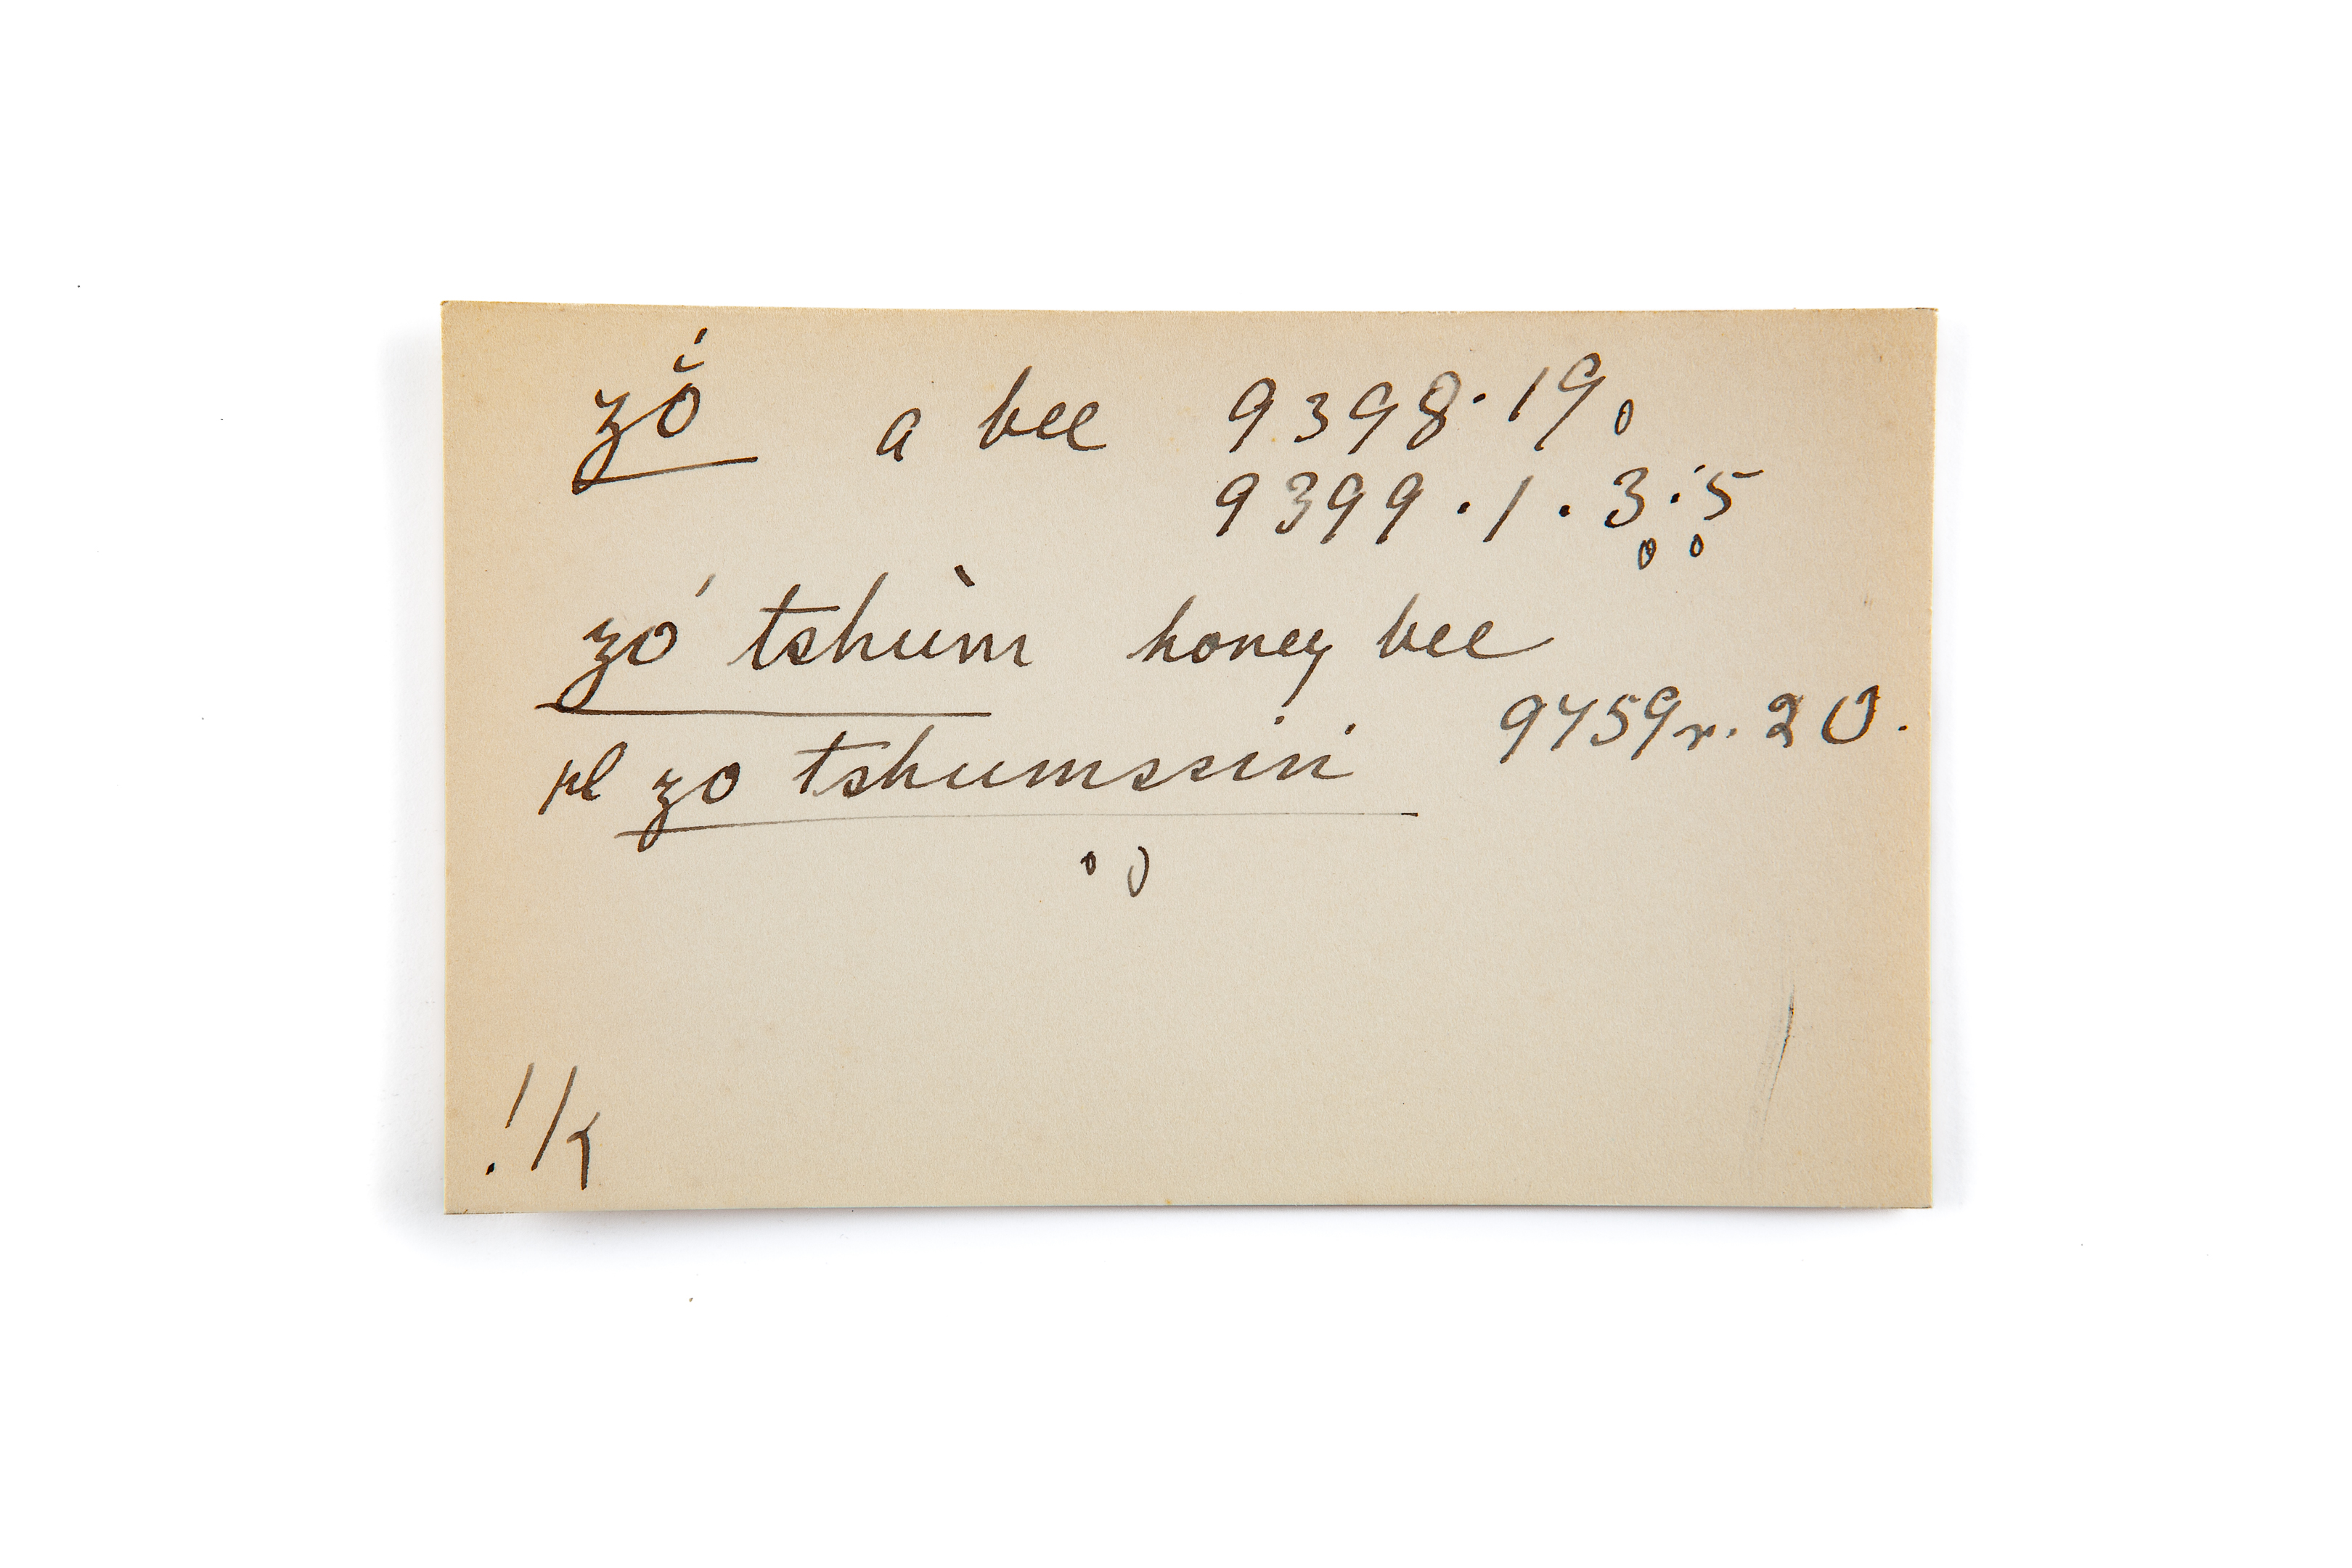 zŏ́ a bee 9398·19
9399·1·3·5
zó tshùm honey bee
9459r.20.
pl zo tshumssiṅ
!k